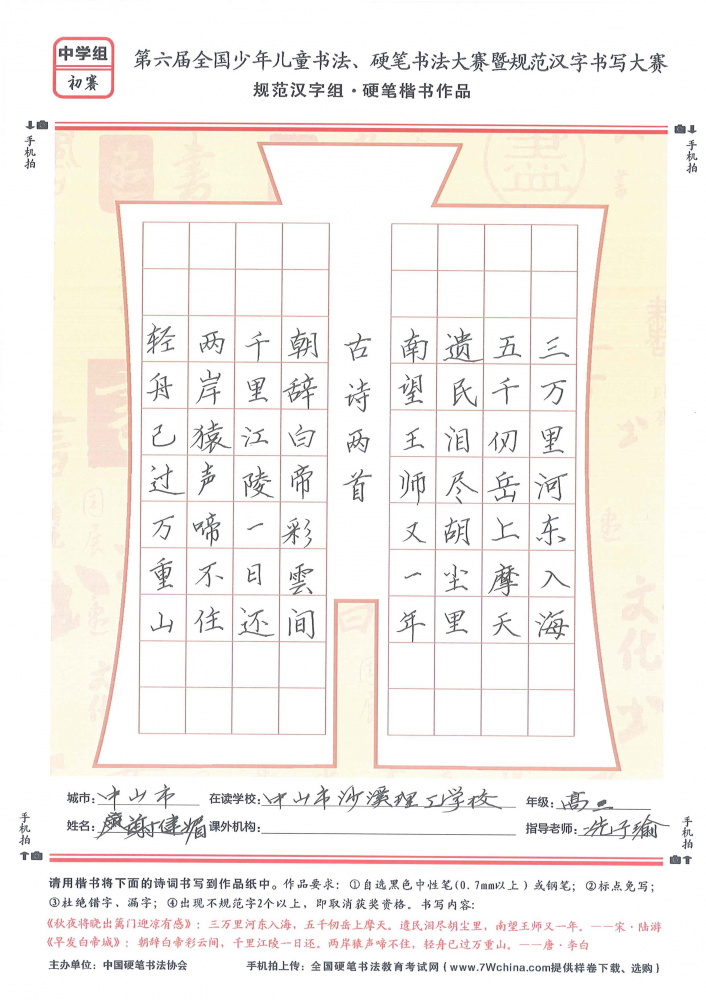 中学组
初赛
第六届全国少年儿童书法、硬笔书法大赛暨规范汉字书写大赛
规范汉字组·硬笔楷书作品
手机拍
手机拍
三万里河东入海
五千仞岳上摩天
遗民泪尽胡尘里
南望王师又一年
古诗两首
朝辞白帝彩雲间
千里江陵一日还
两岸猿声啼不住
轻舟已过万重山
城市：中山市 在读学校：中山市沙溪理工学校 年级：高二
姓名：谢健媚 课外机构： 指导老师：冼子瑜
手机拍
手机拍
请用楷书将下面的诗词书写到作品纸中。作品要求：①自选黑色中性笔(0.7mm以上)或钢笔；②标点免写；
③杜绝错字、漏字；④出现不规范字2个以上，即取消获奖资格。书写内容：
《秋夜将晓出篱门迎凉有感》：三万里河东入海，五千仞岳上摩天。遗民泪尽胡尘里，南望王师又一年。——宋·陆游
《早发白帝城》：朝辞白帝彩云间，千里江陵一日还。两岸猿声啼不住，轻舟已过万重山。——唐·李白
主办单位：中国硬笔书法协会 手机拍上传：全国硬笔书法教育考试网(www.7Wchina.com提供样卷下载、选购)